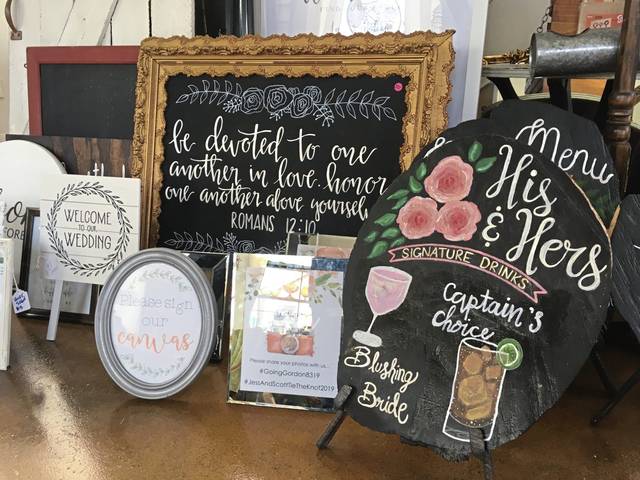 be devoted to one
another in love. honor
one another above yourself
ROMANS 12:10
WELCOME
TO OUR
WEDDING
Please sign
our
canvas
Please share your photos with us...
#GoingGordon8319
#JessAndScottTieTheKnot2019
Menu
His
& Hers
SIGNATURE DRINKS
Captain's
choice
Blushing
Bride